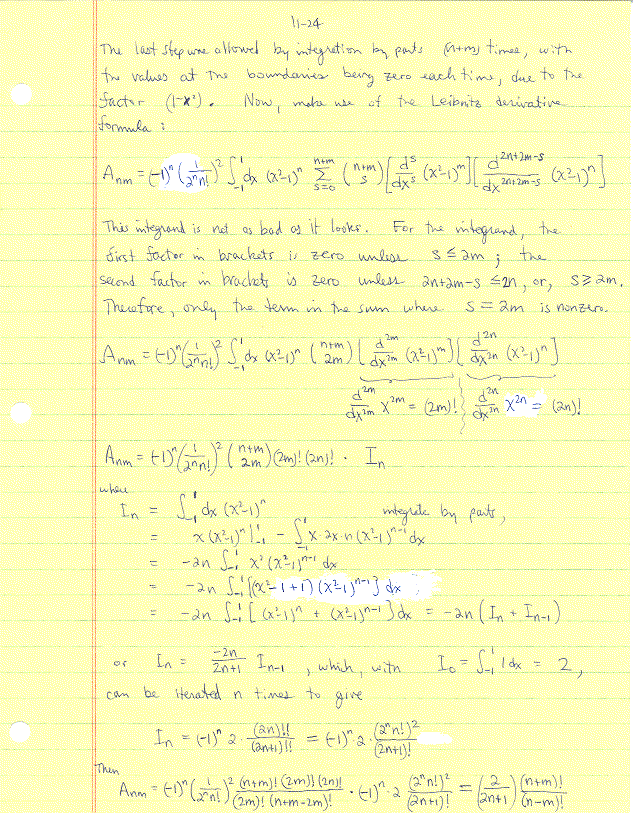 11-24
The last step was allowed by integration by parts (n+m) times, with
the values at the boundaries being zero each time, due to the
factor (1-x²). Now, make use of the Leibnitz derivative
formula :
A_nm = (-1)^n (1/(2^n n!))² ∫_{-1}^{1} dx (x²-1)^n Σ_{s=0}^{n+m} (n+m s) [ d^s/dx^s (x²-1)^m ] [ d^{2n+2m-s}/dx^{2n+2m-s} (x²-1)^n ]
This integrand is not as bad as it looks. For the integrand, the
first factor in brackets is zero unless s ≤ 2m ; the
second factor in brackets is zero unless 2n+2m-s ≤ 2n, or, s ≥ 2m.
Therefore, only the term in the sum where s = 2m is nonzero.
A_nm = (-1)^n (1/(2^n n!))² ∫_{-1}^{1} dx (x²-1)^n (n+m 2m) [ d^{2m}/dx^{2m} (x²-1)^m ] [ d^{2n}/dx^{2n} (x²-1)^n ]
d^{2m}/dx^{2m} x^{2m} = (2m)! d^{2n}/dx^{2n} x^{2n} = (2n)!
A_nm = (-1)^n (1/(2^n n!))² (n+m 2m) (2m)! (2n)! · I_n
where
I_n = ∫_{-1}^{1} dx (x²-1)^n integrate by parts,
= x (x²-1)^n |_{-1}^{1} - ∫_{-1}^{1} x·2x·n (x²-1)^{n-1} dx
= -2n ∫_{-1}^{1} x² (x²-1)^{n-1} dx
= -2n ∫_{-1}^{1} {(x²-1+1) (x²-1)^{n-1}} dx
= -2n ∫_{-1}^{1} [ (x²-1)^n + (x²-1)^{n-1} ] dx = -2n ( I_n + I_{n-1} )
or I_n = -2n/(2n+1) I_{n-1} , which, with I_0 = ∫_{-1}^{1} 1 dx = 2,
can be iterated n times to give
I_n = (-1)^n 2 · (2n)!!/(2n+1)!! = (-1)^n 2 (2^n n!)²/(2n+1)!
Then
A_nm = (-1)^n (1/(2^n n!))² (n+m)! (2m)! (2n)!/((2m)! (n+m-2m)!) · (-1)^n · 2 (2^n n!)²/(2n+1)! = (2/(2n+1)) (n+m)!/(n-m)!